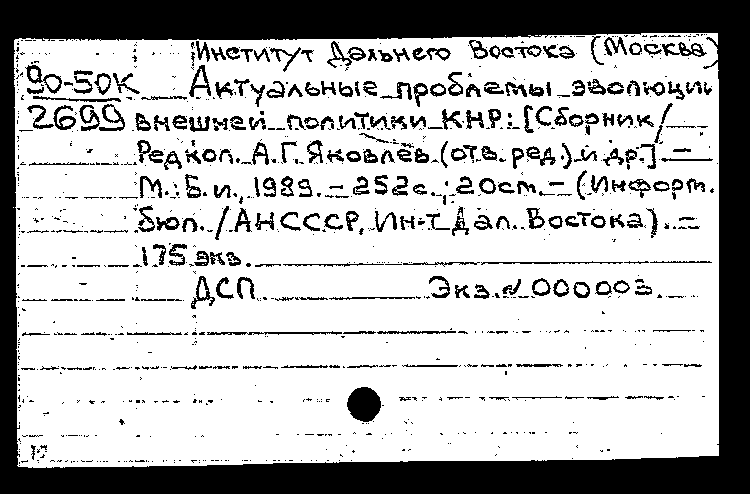 Институт Дальнего Востока (Москва)
90-50К Актуальные проблемы эволюции
2699 внешней политики КНР: [Сборник /
Редкол. А.Г. Яковлев (отв. ред.) и др.]. —
М.: Б.и., 1989. — 252с.; 20см. — (Информ.
бюл. / АН СССР, Ин-т Дал. Востока). —
175 экз.
ДСП Экз. № 000003.